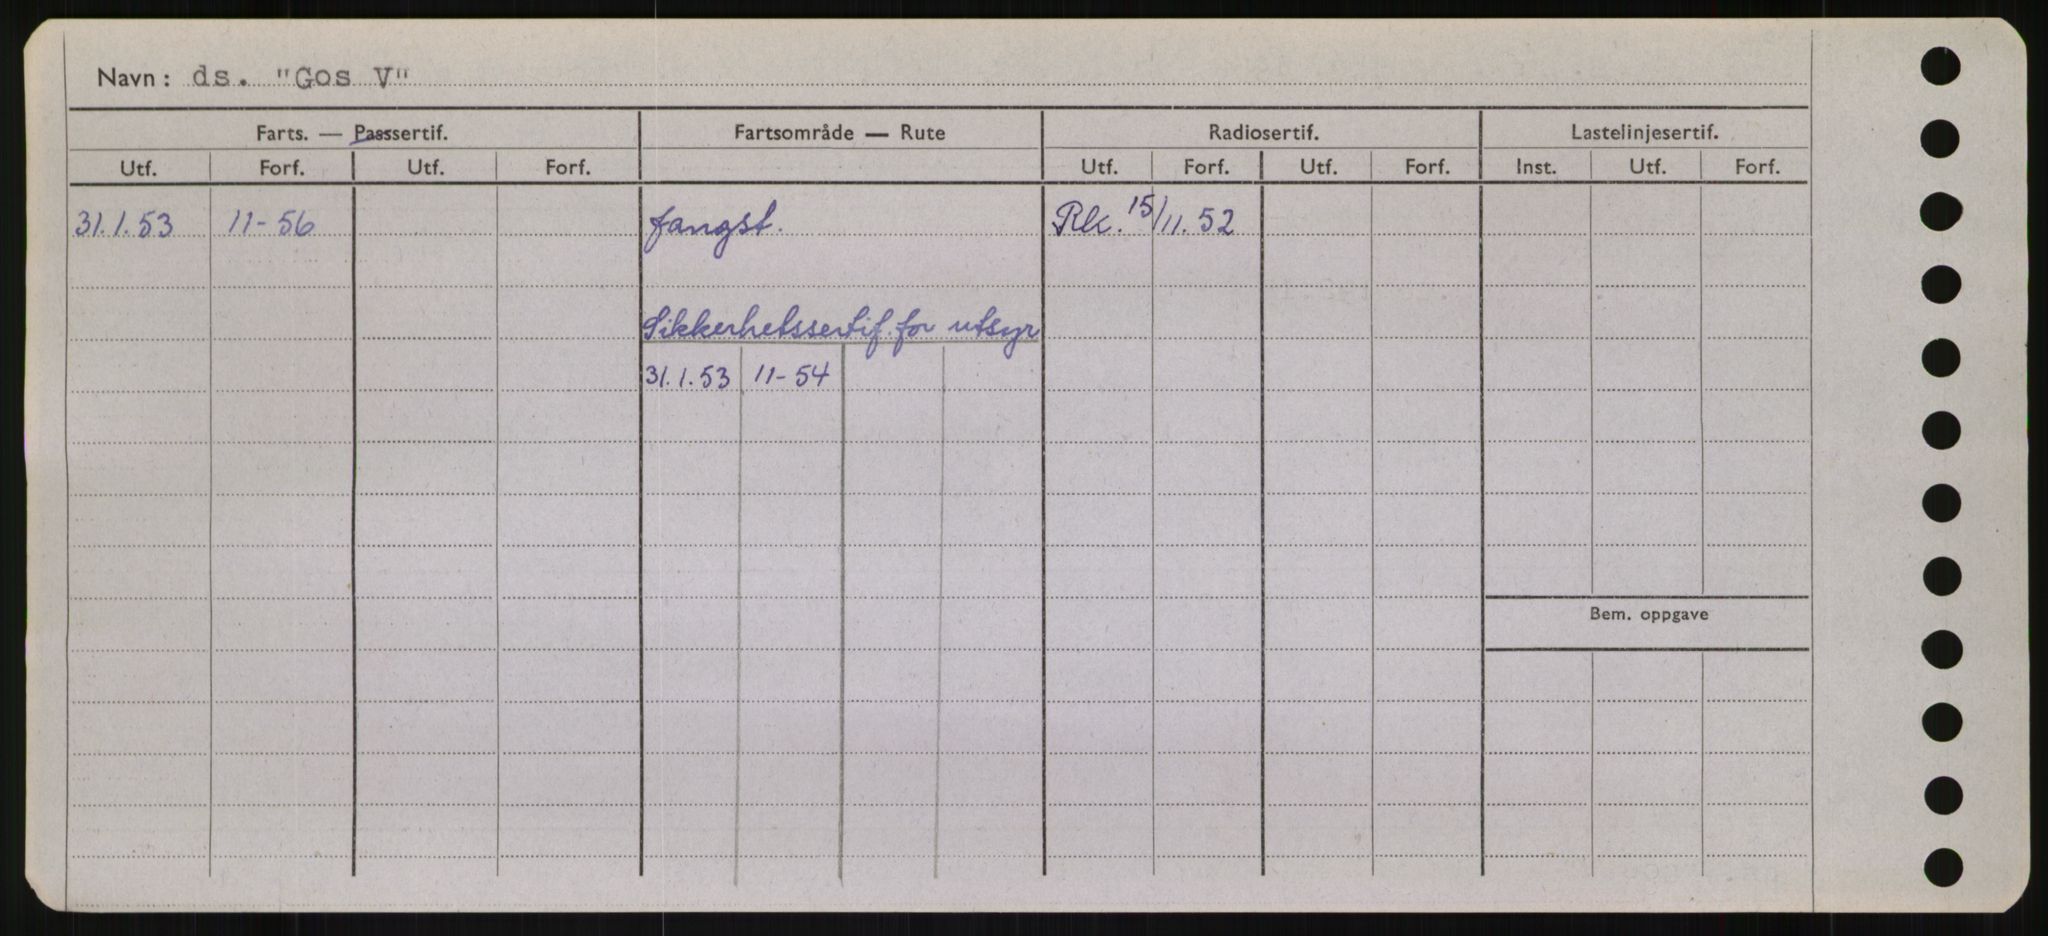 Navn: ds. "Gos V"
Farts. — Passertif. Fartsområde — Rute Radiosertif. Lastelinjesertif.
Utf. Forf. Utf. Forf. Utf. Forf. Utf. Forf. Inst. Utf. Forf.
31.1.53 11-56 fangst. Rk. 15/11.52
Sikkerhetssertif. for utsyr
31.1.53 11-54
Bem. oppgave